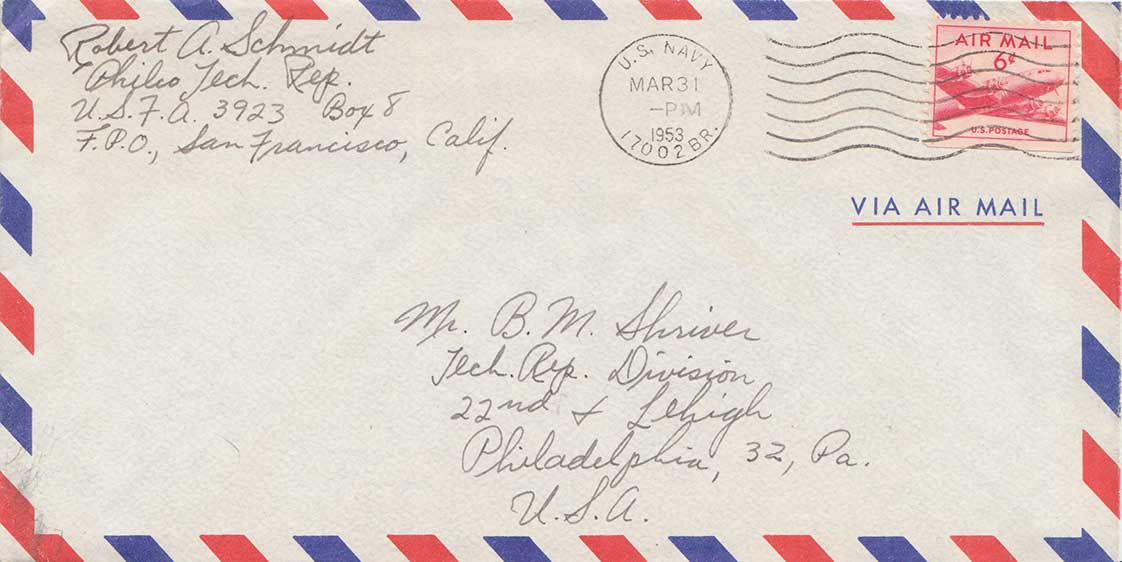 Robert A. Schmidt
Philco Tech. Rep.
U.S.F.A. 3923 Box 8
F.P.O., San Francisco, Calif.
U.S. NAVY
MAR 31
-PM
1953
17002 BR.
AIR MAIL
6¢
U.S. POSTAGE
VIA AIR MAIL
Mr. B. M. Shriver
Tech. Rep. Division
22nd & Lehigh
Philadelphia, 32, Pa.
U.S.A.